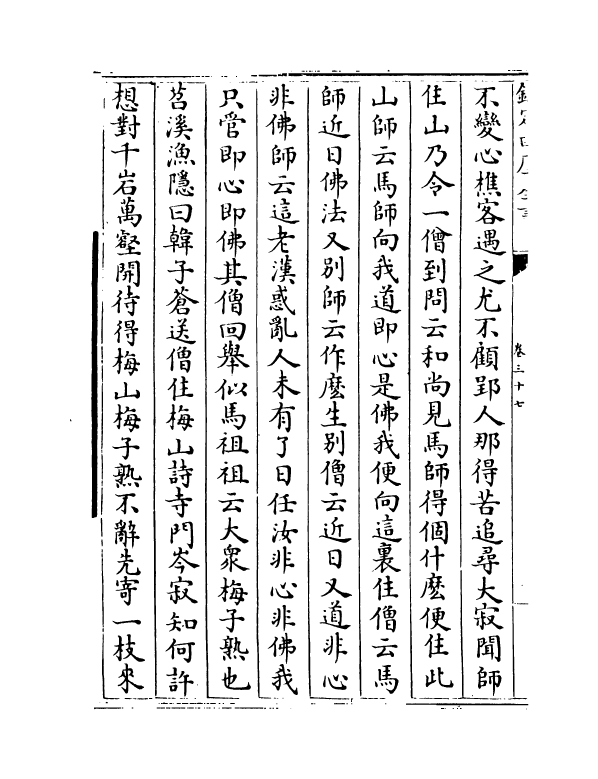 卷三十七
不變心樵客遇之尤不顧郢人那得苦追尋大寂聞師
住山乃令一僧到問云和尚見馬師得個什麽便住此
山師云馬師向我道即心是佛我便向這裏住僧云馬
師近日佛法又別師云作麽生別僧云近日又道非心
非佛師云這老漢惑亂人未有了日任汝非心非佛我
只管即心即佛其僧回舉似馬祖祖云大衆梅子熟也
苕溪漁隱曰韓子蒼送僧住梅山詩寺門岑寂知何許
想對千岩萬壑開待得梅山梅子熟不辭先寄一枝來